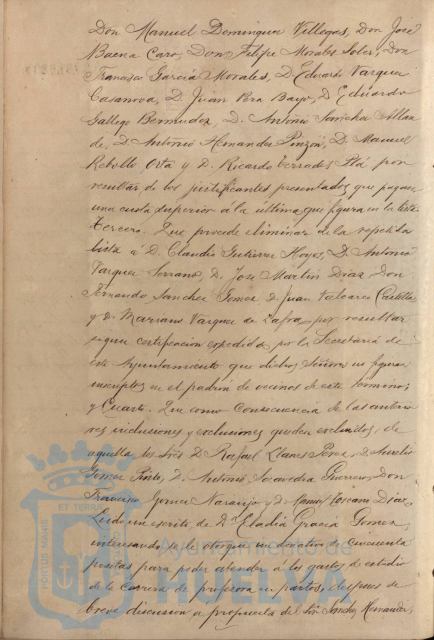 Don Manuel Dominguez Villegas, Don José
Baena Caro, Don Felipe Morales Soler, Don
Francisco García Morales, D. Eduardo Vazquez
Casanova, D. Juan Vera Bayo, D. Eduardo
Gallego Bermudez, D. Antonio Sanchez Allan
de, D. Antonio Hernandez Pinzon, D. Manuel
Rebollo Orta y D. Ricardo Terrades Plá por
resultar de los justificantes presentados, que pagan
una cuota superior á la última que figura en la lista.
Tercero. Que procede eliminar de la repetida
lista á D. Claudio Gutierrez Hoyos, D. Antonio
Vazquez Serrano, D. José Martin Diaz, Don
Fernando Sanchez Gomez D. Juan Talvarez Castilla
y D. Mariano Vazquez de Zafra, por resultar
segun certificacion expedida por la Secretaría de
este Ayuntamiento que dichos Señores no figuran
inscriptos en el padrón de vecinos de este término;
y Cuarto. Que como consecuencia de las anterio
res inclusiones y exclusiones queden excluidos, de
aquella los Sres. D. Rafael Llanes Perez, D. Aurelio
Gomez Pinto, D. Antonio Saavedra Guerrero, Don
Francisco Gomez Naranjo, y D. Manuel Toscano Diaz.
Leido un escrito de Dª Eladia Gracia Gomez,
interesando se le otorgue un donativo de cincuenta
pesetas para poder atender á los gastos de estudio
de la Carrera de profesora en partos, despues de
breve discusion á propuesta del Sr. Sanchez Hernandez,
PORTUS MARIS
ET TERRAE
Ayuntamiento de
HUELVA